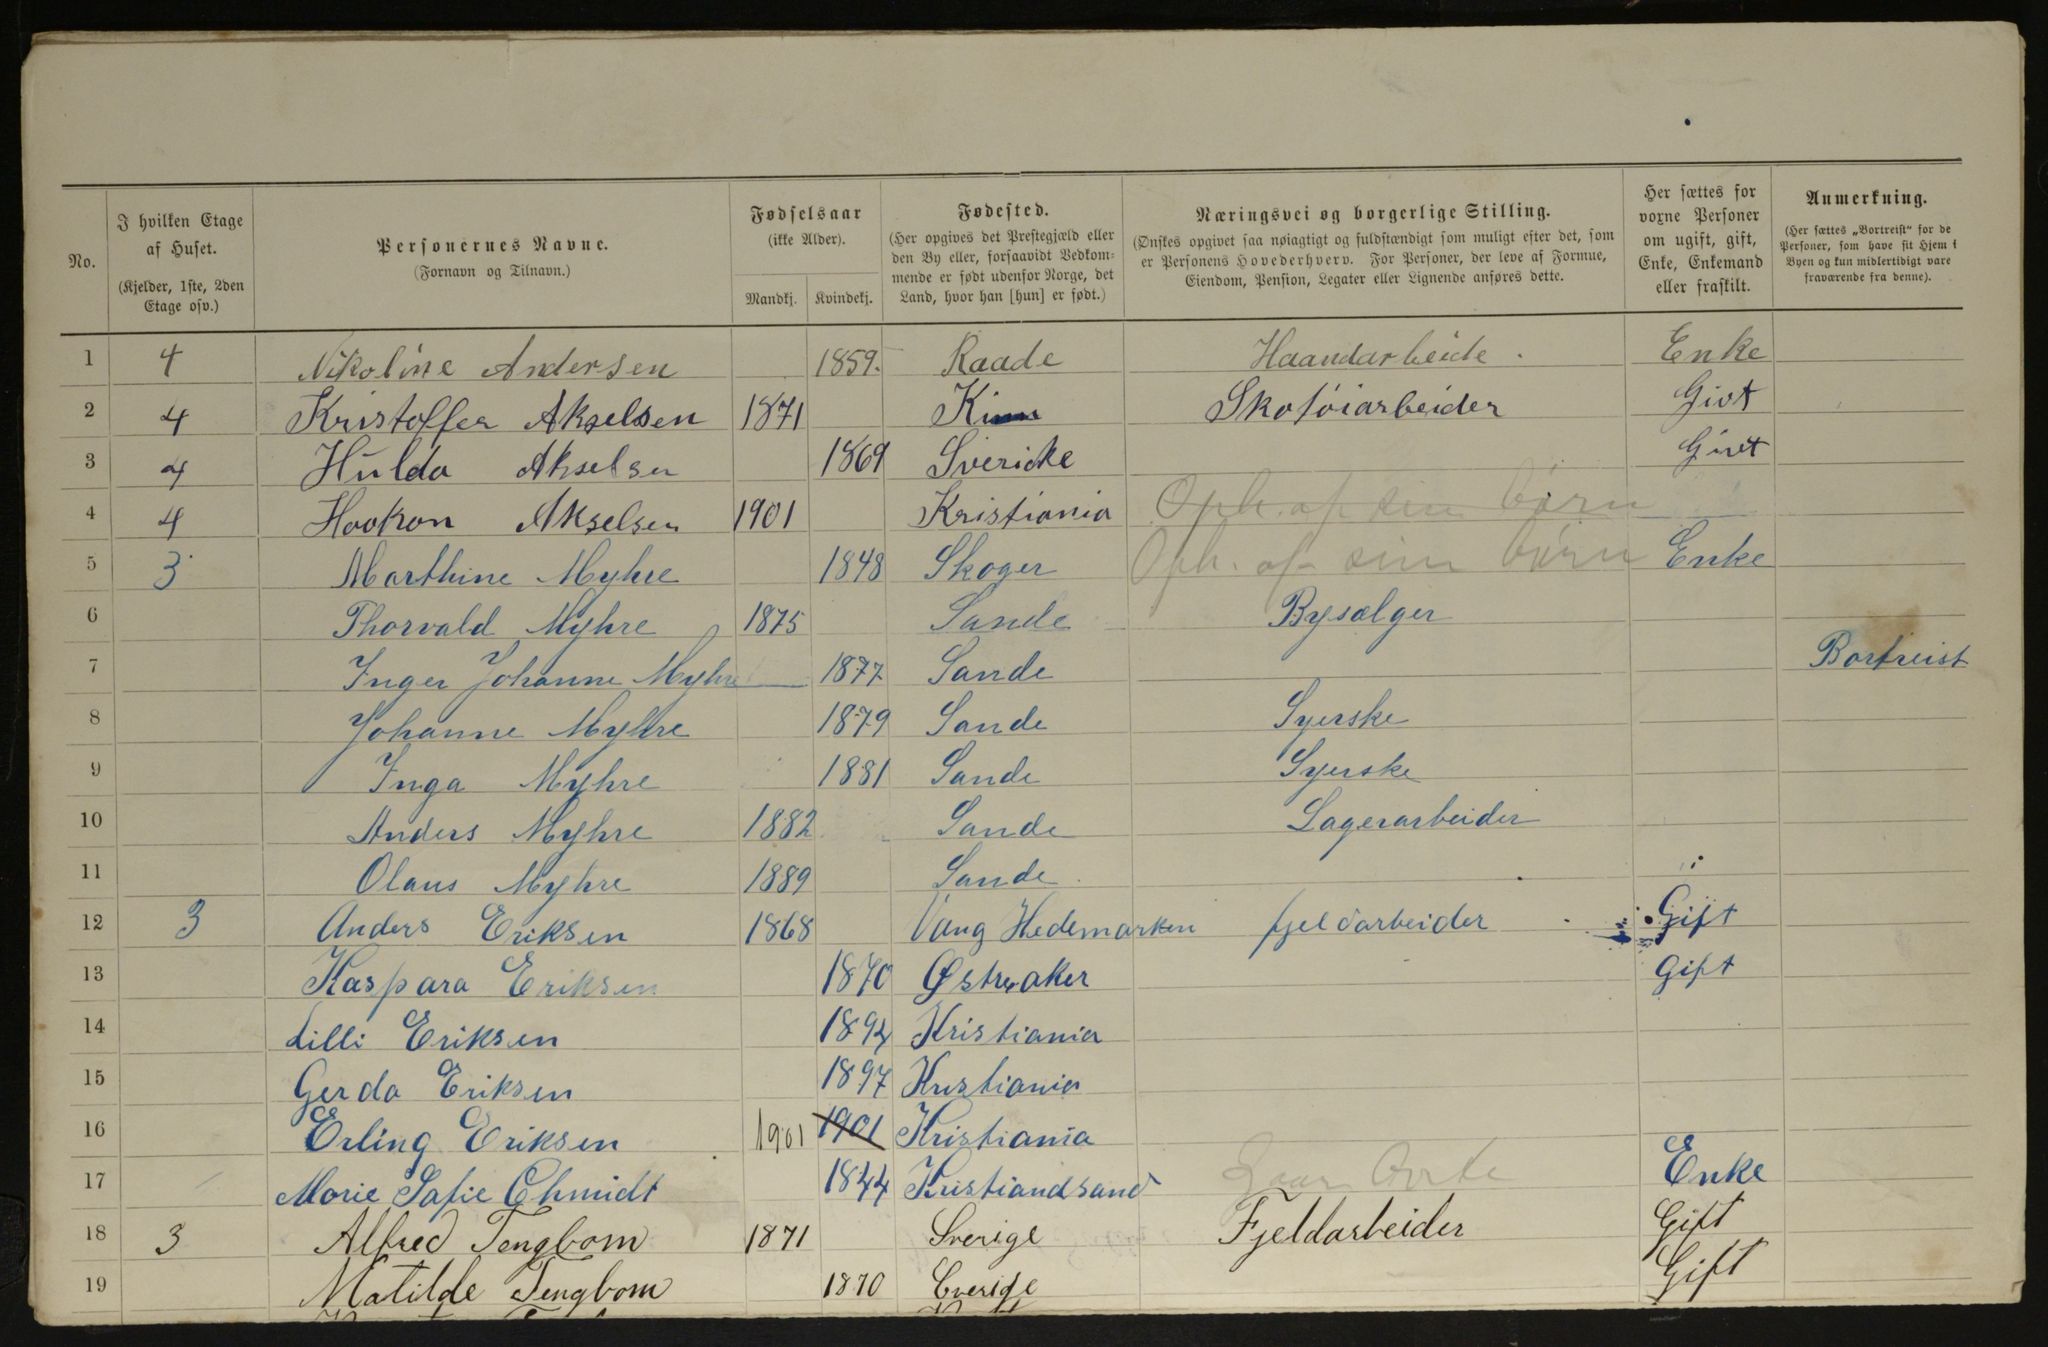 No.
I hvilken Etage af Huset. (Kjelder, 1ste, 2den Etage osv.)
Personernes Navne. (Fornavn og Tilnavn.)
Fødselsaar (ikke Alder).
Mandkj. Kvindekj.
Fødested. (Her opgives det Prestegjæld eller den By eller, forsaavidt Vedkommende er født udenfor Norge, det Land, hvor han [hun] er født.)
Næringsvei og borgerlige Stilling. (Ønskes opgivet saa nøiagtigt og fuldstændigt som muligt efter det, som er Personens Hovederhverv. For Personer, der leve af Formue, Eiendom, Pension, Legater eller Lignende anføres dette.
Her sættes for voxne Personer om ugift, gift, Enke, Enkemand eller fraskilt.
Anmerkning. (Her sættes „Bortreist“ for de Personer, som have sit Hjem i Byen og kun midlertidigt vare fraværende fra denne).
1 4 Nikoline Andersen 1859. Raade Haandarbeide. Enke
2 4 Kristoffer Akselsen 1871 Skotøiarbeider Givt
3 4 Hulda Akselsen 1869 Svericke Givt
4 4 Hookon Akselsen 1901 Kristiania Oph. af sin børn
5 3 Marthine Myhre 1848 Skoger Oph. af sine børn Enke
6 Thorvald Myhre 1875 Sande Bysælger
7 Inger Johanne Myhre 1877 Sande Bortreist
8 Johanne Myhre 1879 Sande Syerske
9 Inga Myhre 1881 Sande Syerske
10 Anders Myhre 1882 Sande Lagerarbeider
11 Olaus Myhre 1889 Sande
12 3 Anders Eriksen 1868 Vang Hedemarken fjeldarbeider Gift
13 Kaspara Eriksen 1870 Østre aker Gift
14 Lilli Eriksen 1894 Kristiania
15 Gerda Eriksen 1897 Kristiania
16 Erling Eriksen 1901 1901 Kristiania
17 Morie Sofie Chmidt 1844 Kristiandsand Enke
18 3 Alfred Tengbom 1871 Sverige Fjeldarbeider Gift
19 Matilde Tengbom 1870 Sverige Gift